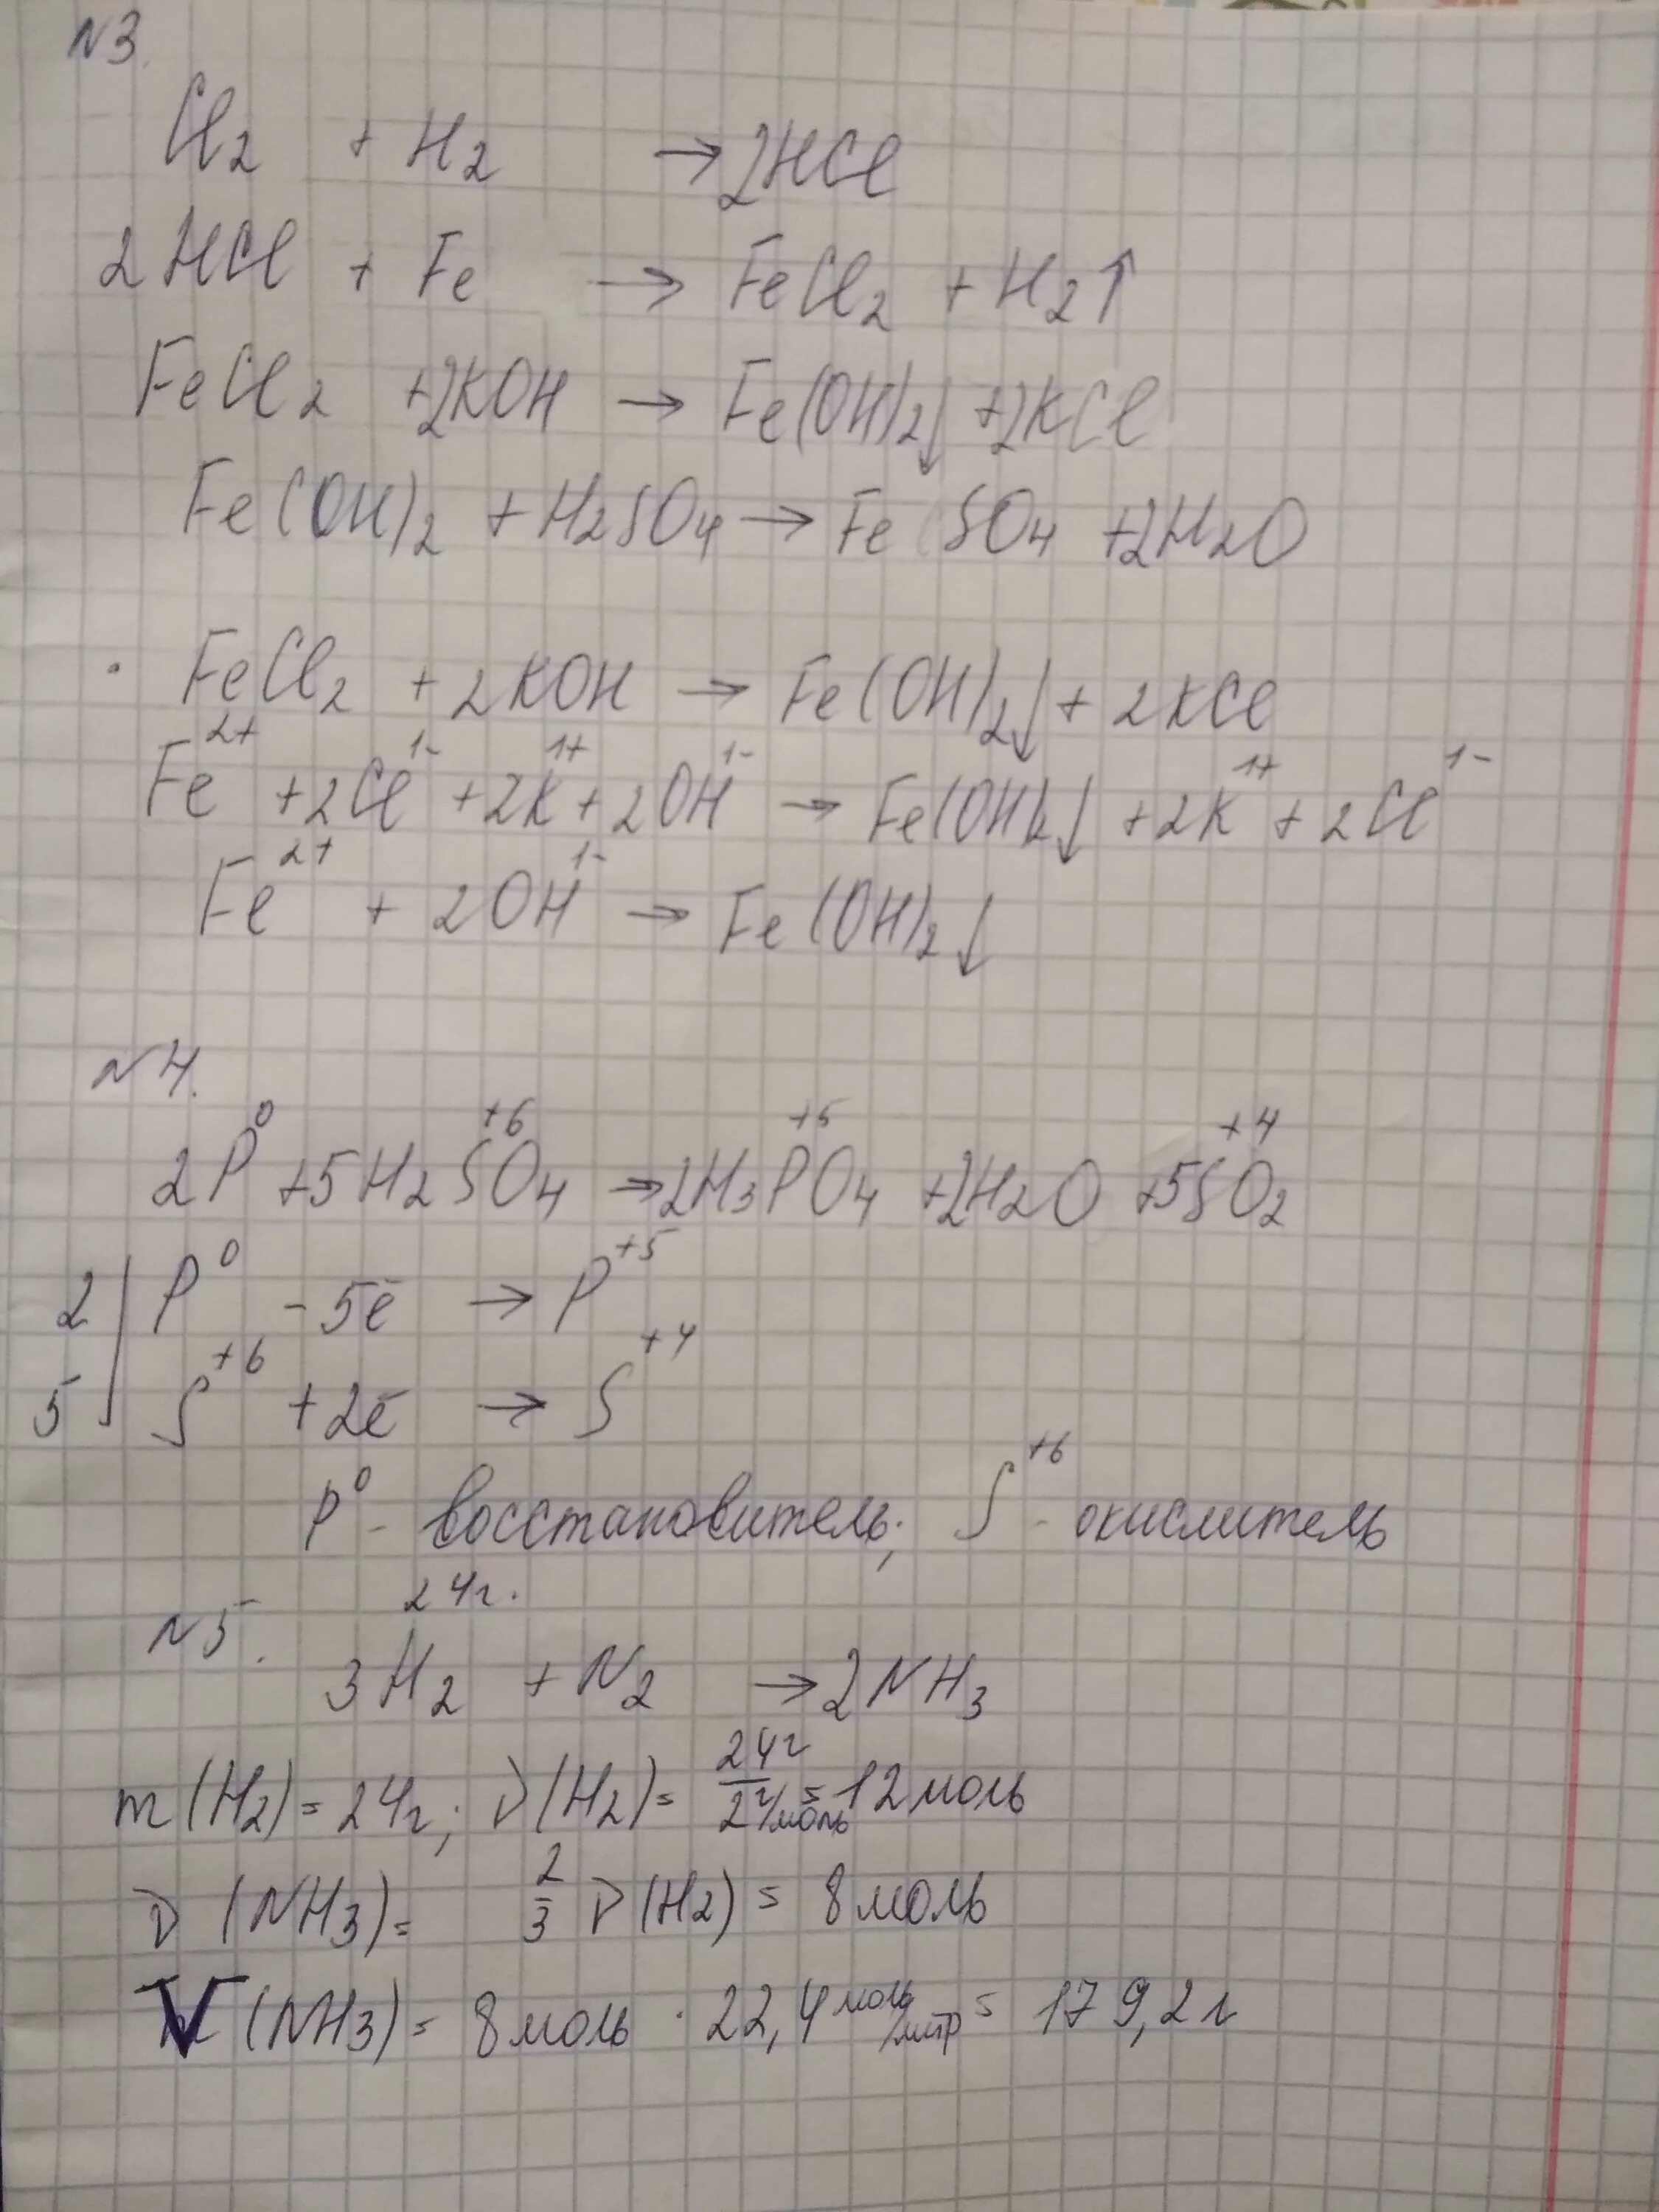 N3.
Cl₂ + H₂ → 2HCl
2HCl + Fe → FeCl₂ + H₂↑
FeCl₂ +2KOH → Fe(OH)₂↓ +2KCl
Fe(OH)₂ + H₂SO₄ → FeSO₄ +2H₂O
· FeCl₂ + 2KOH → Fe(OH)₂↓ + 2KCl
Fe²⁺ +2Cl¹⁻ +2K¹⁺ + 2OH¹⁻ → Fe(OH)₂↓ +2K¹⁺ + 2Cl¹⁻
Fe²⁺ + 2OH¹⁻ → Fe(OH)₂↓
N4.
2P⁰ +5H₂S⁺⁶O₄ → 2H₃P⁺⁵O₄ +2H₂O +5S⁺⁴O₂
2 | P⁰ - 5ē → P⁺⁵
5 | S⁺⁶ +2ē → S⁺⁴
P⁰ - восстановитель; S⁺⁶ - окислитель
24г.
N5.
3H₂ + N₂ → 2NH₃
m(H₂)= 24г; ν(H₂)= 24г/2г/моль = 12моль
ν(NH₃)= 2/3 ν(H₂) = 8моль
V(NH₃)= 8моль · 22,4моль/литр = 179,2л